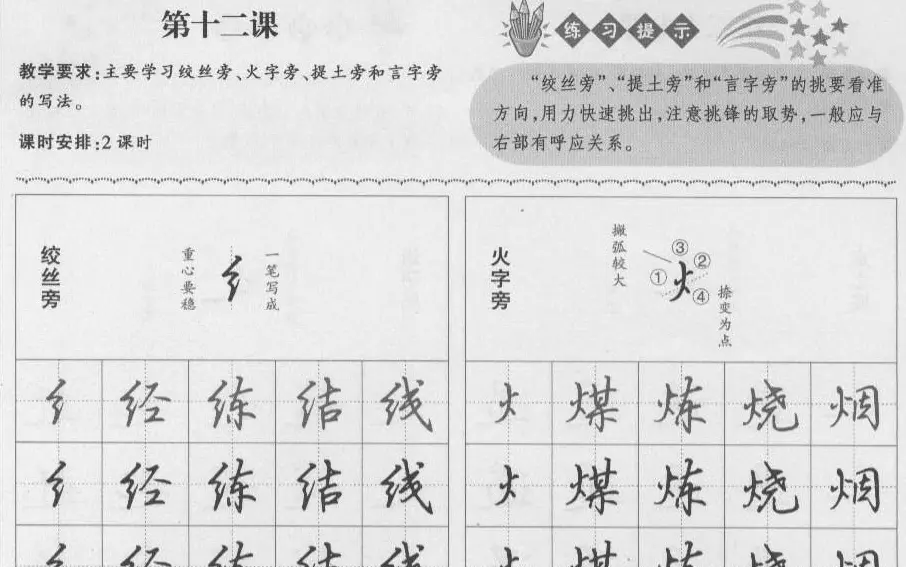 第十二课
教学要求:主要学习绞丝旁、火字旁、提土旁和言字旁
的写法。
课时安排:2课时
练习提示
“绞丝旁”、“提土旁”和“言字旁”的挑要看准
方向,用力快速挑出,注意挑锋的取势,一般应与
右部有呼应关系。
绞丝旁
重心要稳
纟
一笔写成
火字旁
撇弧较大
①
③
②
④
火
捺变为点
纟 经 练 结 线
火 煤 炼 烧 烟
纟 经 练 结 线
火 煤 炼 烧 烟
纟 经 练 结 线
火 煤 炼 烧 烟